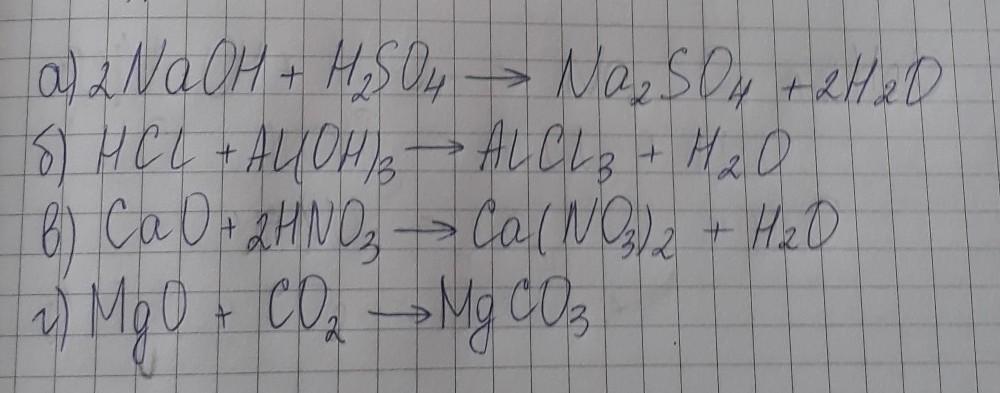 а) 2NaOH + H₂SO₄ → Na₂SO₄ + 2H₂O
б) HCl + Al(OH)₃ → AlCl₃ + H₂O
в) CaO + 2HNO₃ → Ca(NO₃)₂ + H₂O
г) MgO + CO₂ → MgCO₃